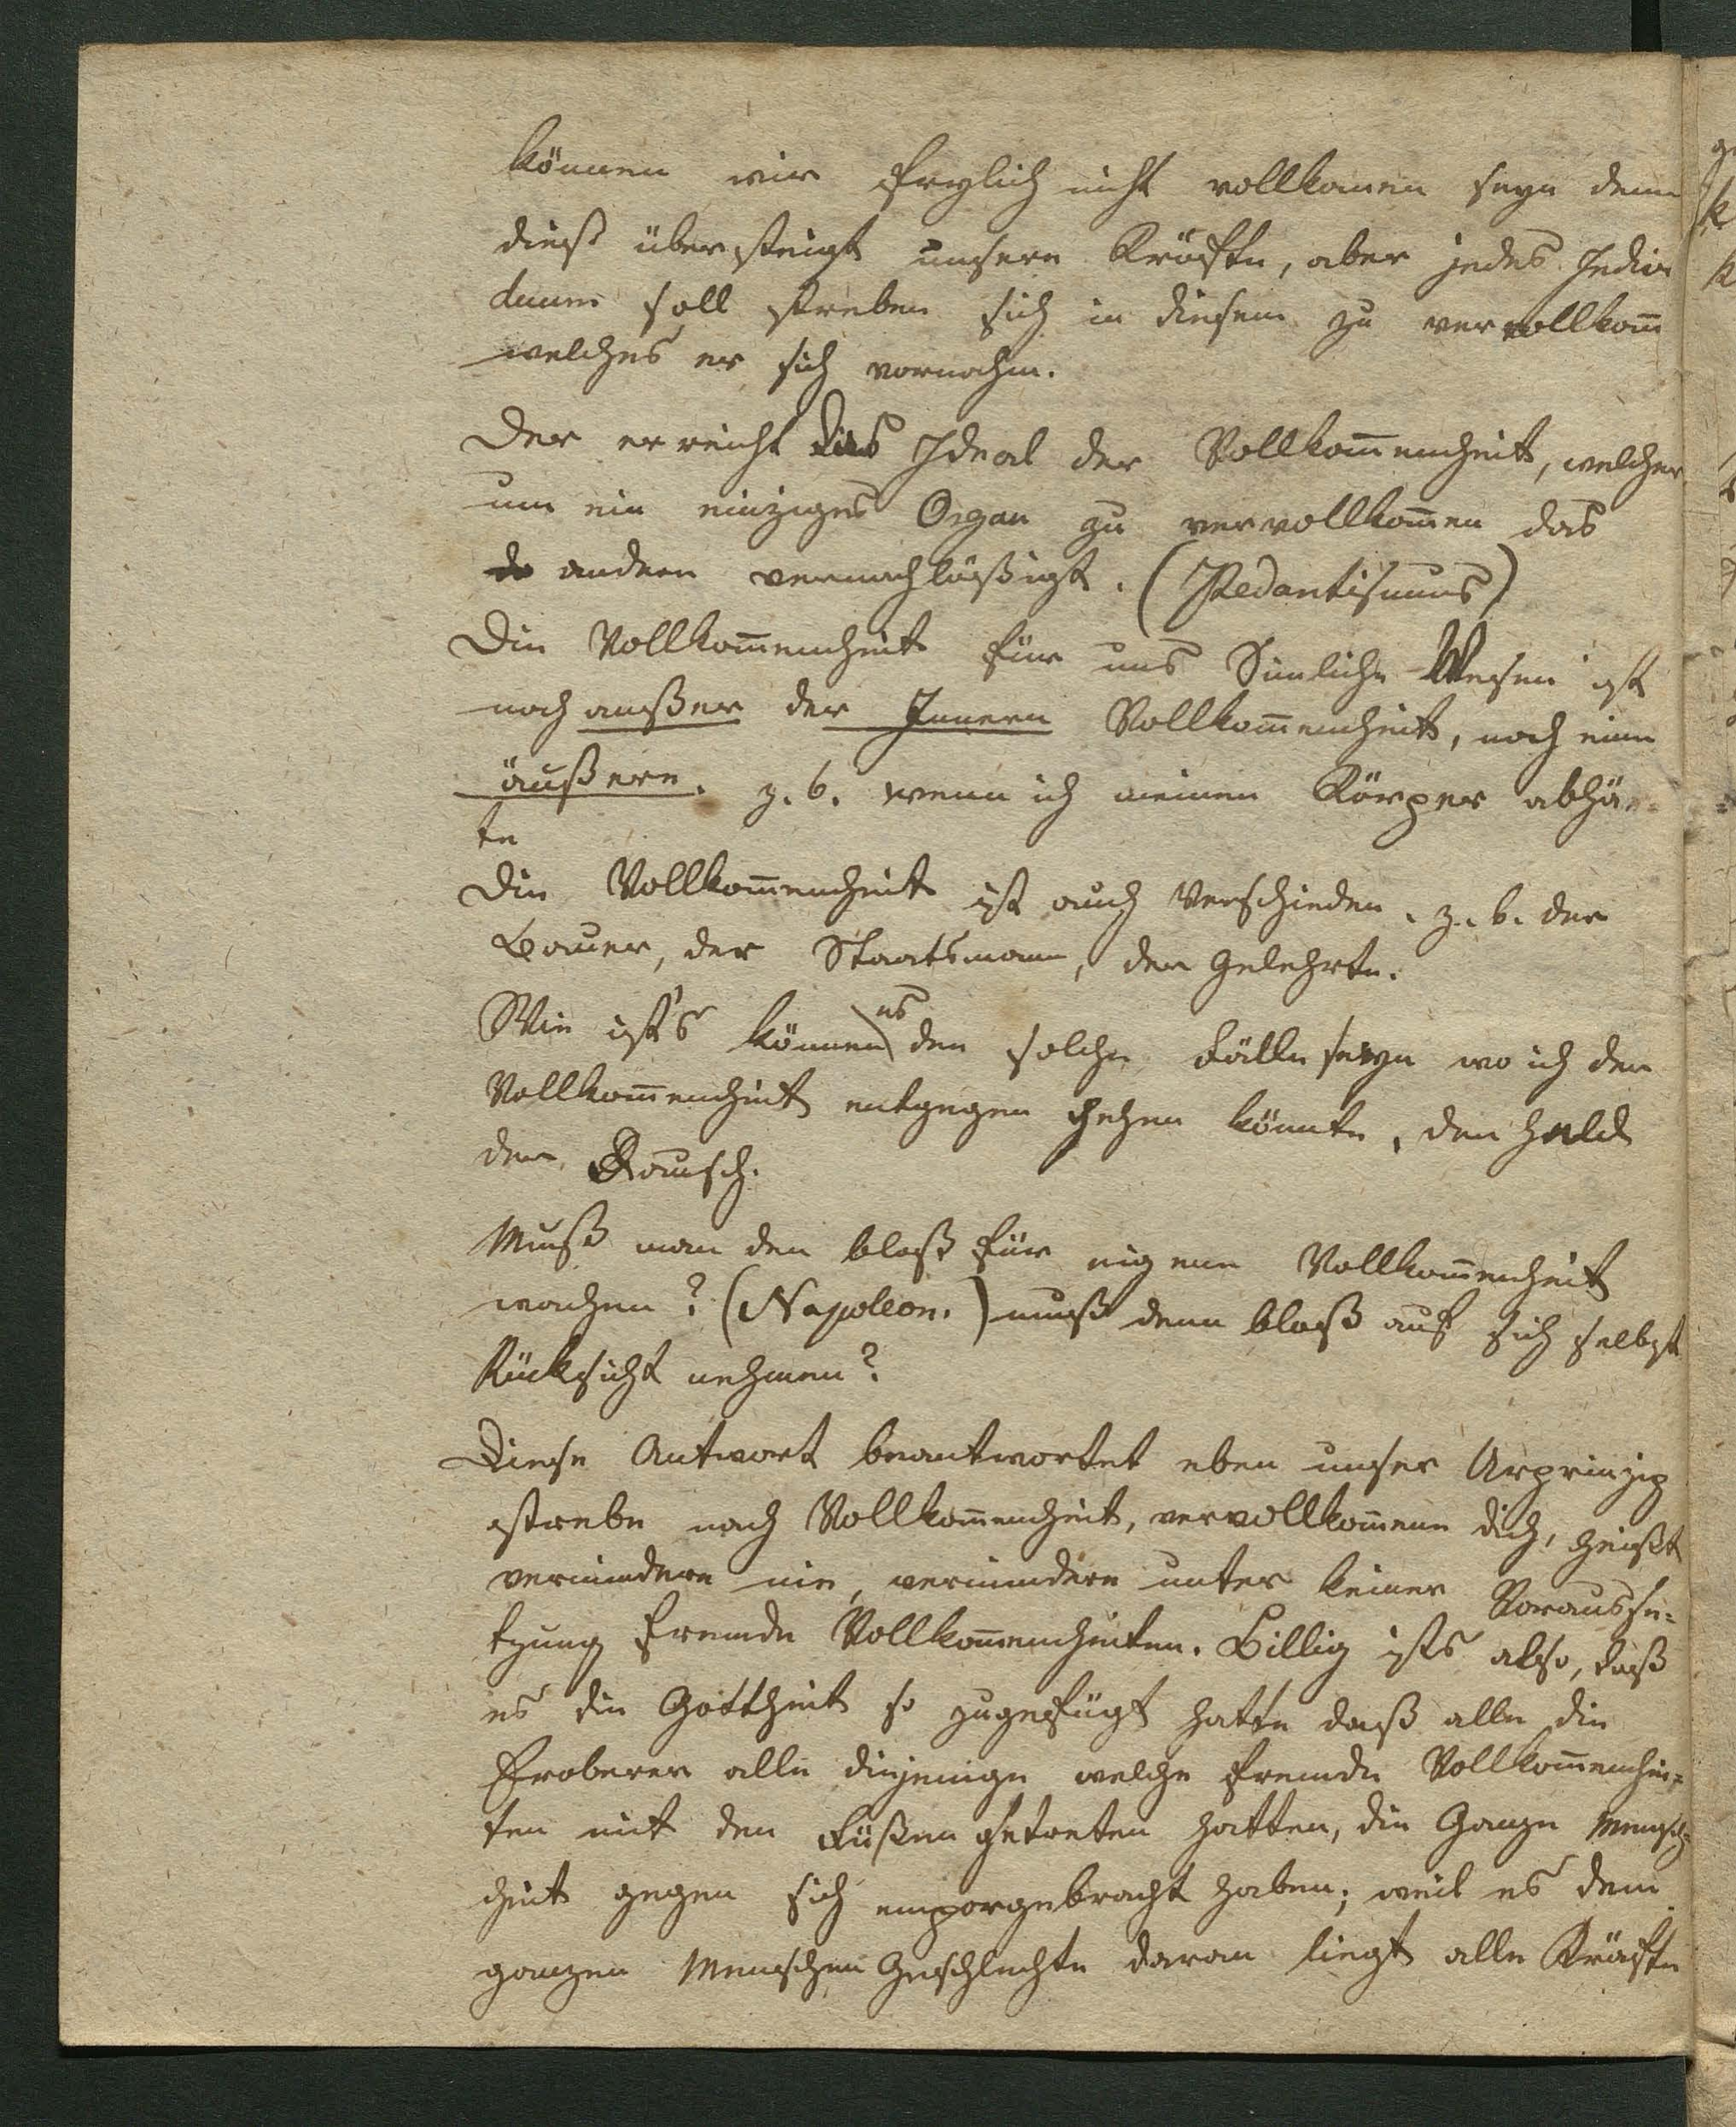 können wir freylich nicht vollkomen seyn denn
diess übersteigt unsere Kräfte, aber jedes Indivi
duum soll streben sich in diesem zu vervollkom̄
welches er sich vornahm.
Der erreicht das Ideal der Vollkom̄enheit, welcher
um ein einziges Organ zu vervollkom̄en das
andere vernachläßigt. (Pedantismus)
Die Vollkom̄enheit für uns Sinliche Wesen ist
noch außer der Innern Vollkom̄enheit, noch eine
äußere. z. b. wenn ich meinen Körper abhär=
te
Die Vollkom̄enheit ist auch verschieden. z. b. der
Bauer, der Staatsmann, der Gelehrte.
Wie ist's können es den solche Fälle seyn wo ich der
Vollkom̄enheit entgegen gehen könnte, der Held
der Rausch.
Muß man den bloß für eigene Vollkom̄enheit
wachen? (Napoleon.) muß denn bloß auf sich selbst
Rücksicht nehmen?
Diese Antwort beantwortet eben unser Urprinzip
strebe nach Vollkom̄enheit, vervollkom̄ene dich, heißt
vermindere nie, vermindere unter keiner Vorausse=
tzung fremde Vollkom̄enheiten. Billig ists also, daß
es die Gottheit so zugefügt hatte daß alle die
Eroberer alle diejenige welche fremde Vollkom̄enhei=
ten mit den Füßen getreten hatten, die Ganze Mensch=
heit gegen sich emporgebracht haben; weil es dem
ganzen Menschen Geschlechte daran liegt alle Kräfte